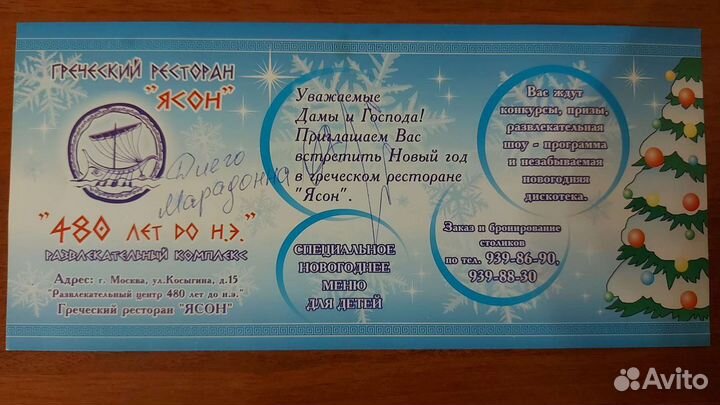 ГРЕЧЕСКИЙ РЕСТОРАН
"ЯСОН"
Диего
Марадонна
"480 ЛЕТ ДО Н.Э."
РАЗВЛЕКАТЕЛЬНЫЙ КОМПЛЕКС
Адрес: г. Москва, ул.Косыгина, д.15
"Развлекательный центр 480 лет до н.э."
Греческий ресторан "ЯСОН"
Уважаемые
Дамы и Господа!
Приглашаем Вас
встретить Новый год
в греческом ресторане
"Ясон".
СПЕЦИАЛЬНОЕ
НОВОГОДНЕЕ
МЕНЮ
ДЛЯ ДЕТЕЙ
Вас ждут
конкурсы, призы,
развлекательная
шоу - программа
и незабываемая
новогодняя
дискотека.
Заказ и бронирование
столиков
по тел. 939-86-90,
939-88-30
Avito